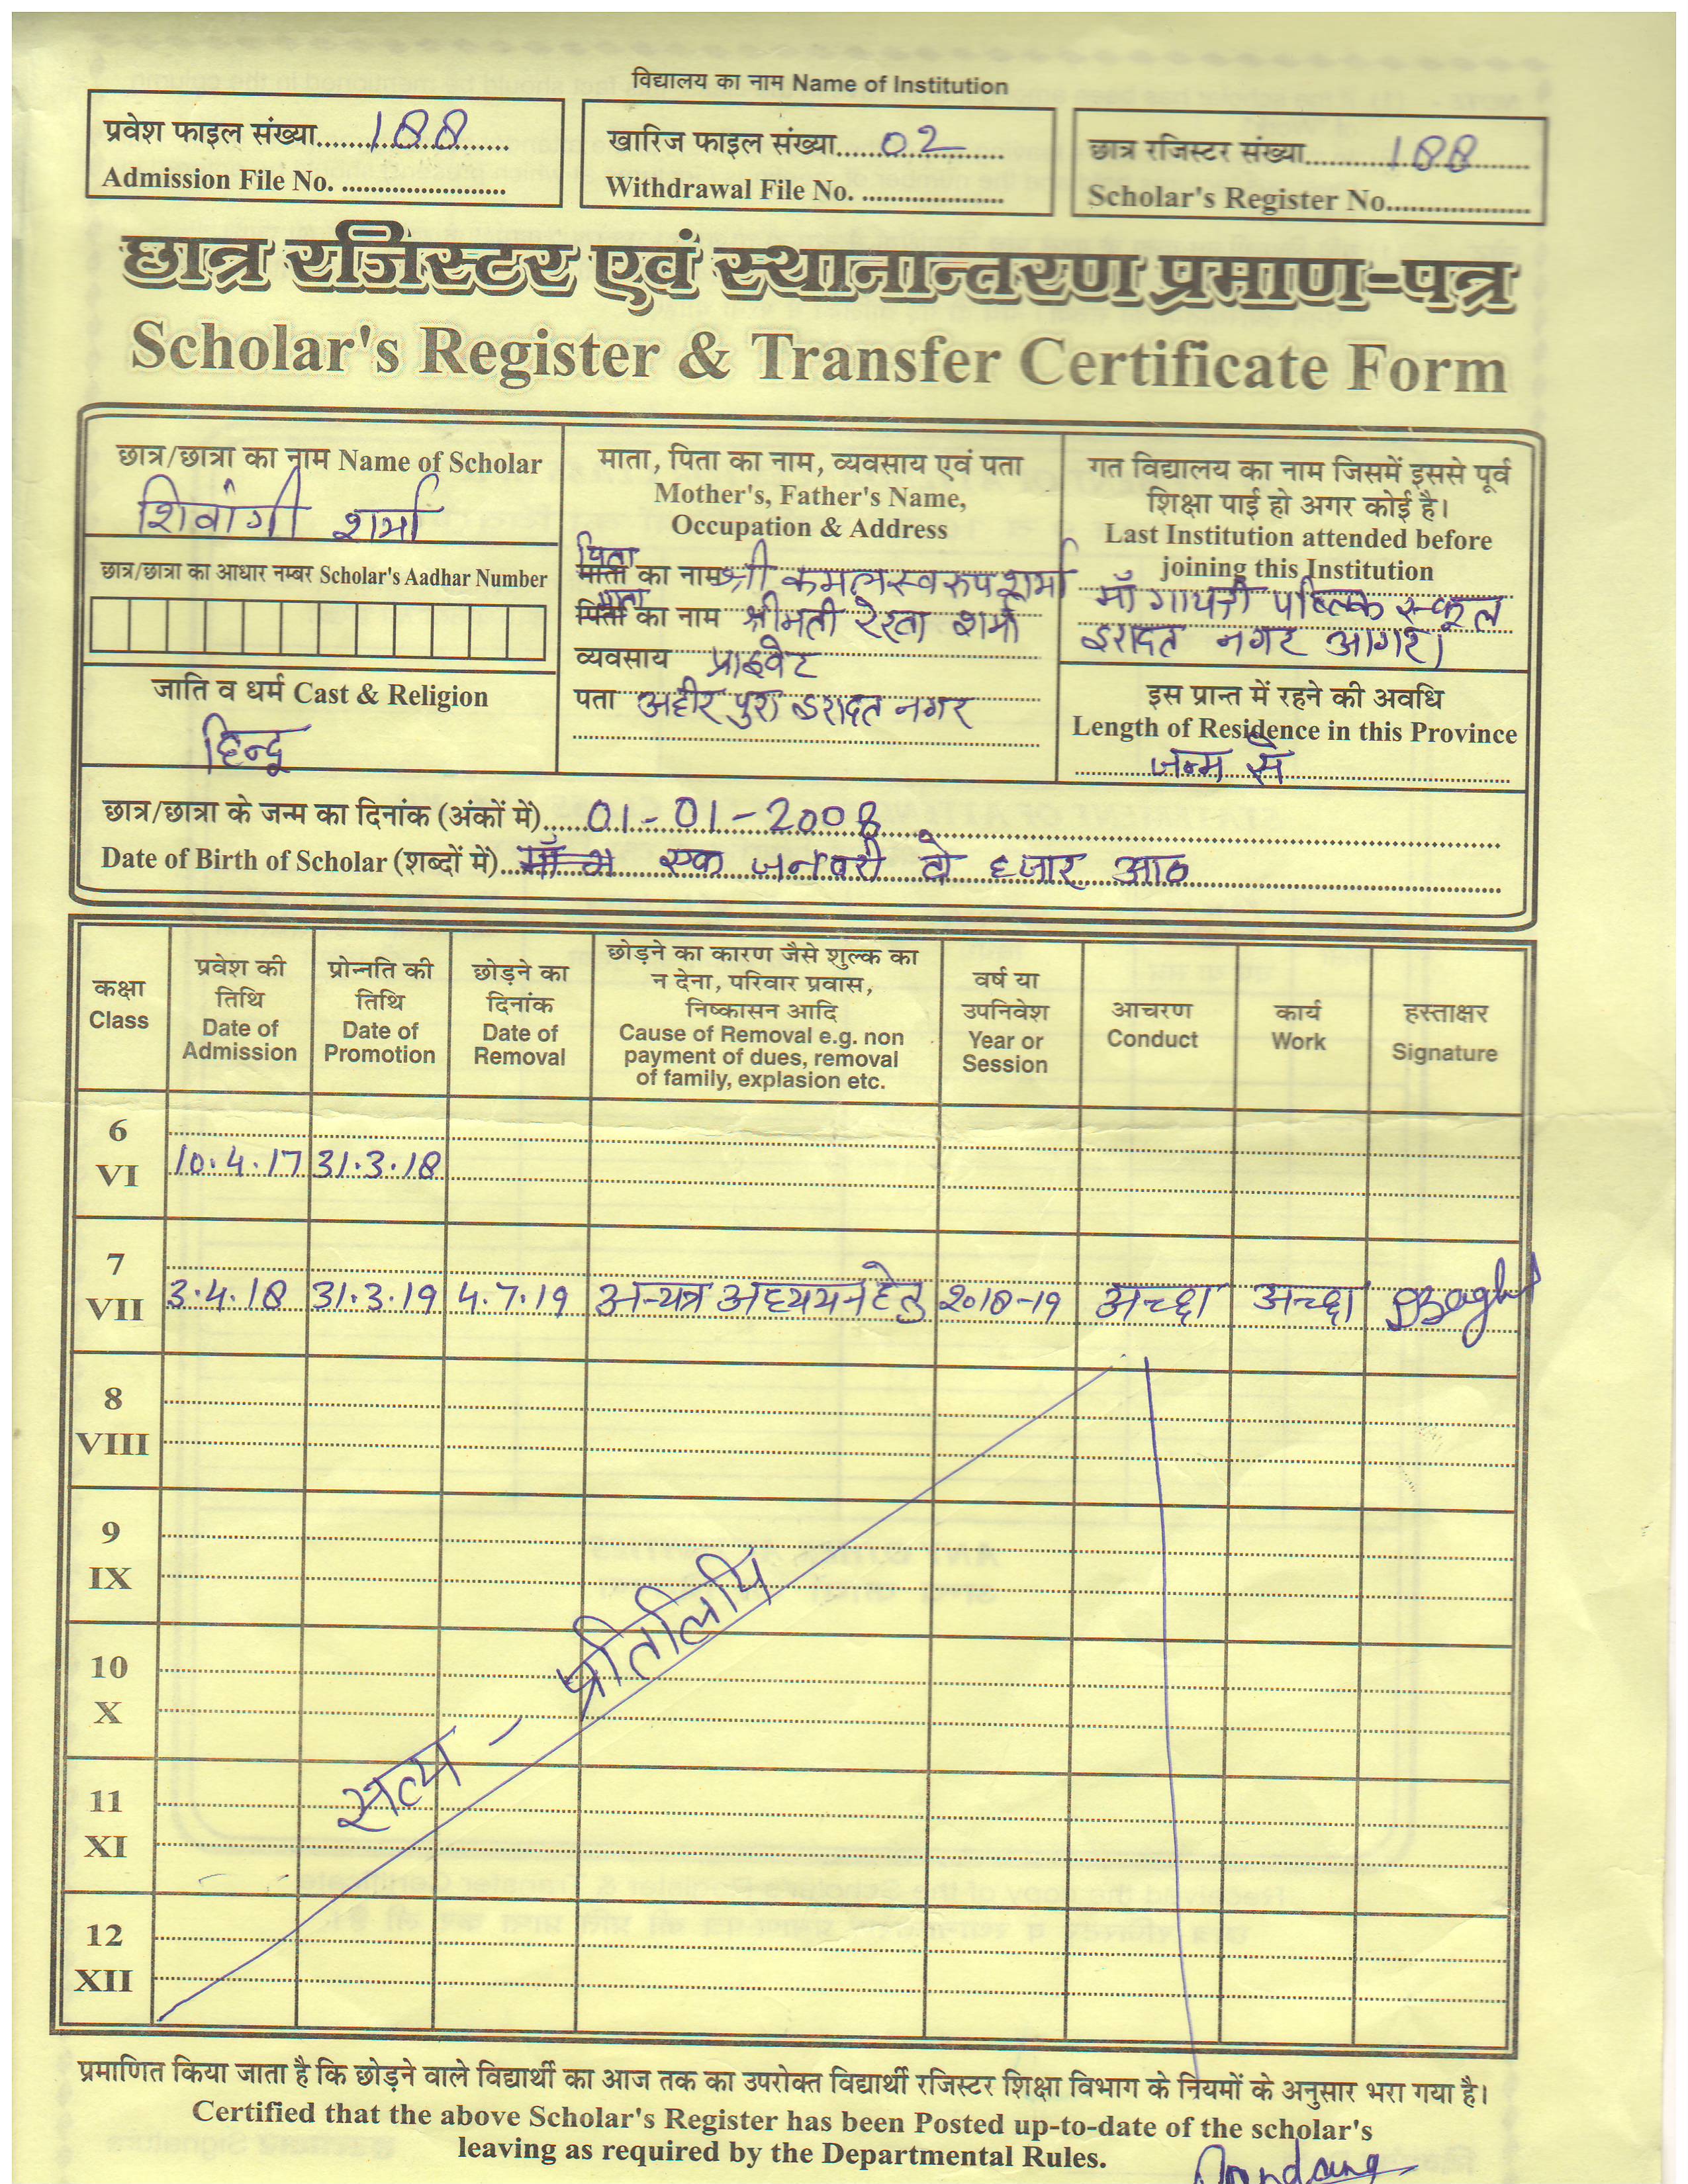 विद्यालय का नाम Name of Institution
प्रवेश फाइल संख्या......188..........
Admission File No. ......................
खारिज फाइल संख्या......02..........
Withdrawal File No. ....................
छात्र रजिस्टर संख्या..........188..........
Scholar's Register No....................
छात्र रजिस्टर एवं स्थानान्तरण प्रमाण-पत्र
Scholar's Register & Transfer Certificate Form
छात्र/छात्रा का नाम Name of Scholar
शिवांगी शर्मा
छात्र/छात्रा का आधार नम्बर Scholar's Aadhar Number
जाति व धर्म Cast & Religion
हिन्दू
माता, पिता का नाम, व्यवसाय एवं पता
Mother's, Father's Name,
Occupation & Address
पिता
माता का नाम श्री कमलस्वरुप शर्मा
माता
पिता का नाम श्रीमती रेखा शर्मा
व्यवसाय प्राइवेट
पता अहीर पुरा इरादत नगर
गत विद्यालय का नाम जिसमें इससे पूर्व
शिक्षा पाई हो अगर कोई है।
Last Institution attended before
joining this Institution
माँ गायत्री पब्लिक स्कूल
इरादत नगर आगरा
इस प्रान्त में रहने की अवधि
Length of Residence in this Province
जन्म से
छात्र/छात्रा के जन्म का दिनांक (अंकों में).....01-01-2008
Date of Birth of Scholar (शब्दों में)..... एक जनवरी दो हजार आठ
कक्षा
Class
प्रवेश की
तिथि
Date of
Admission
प्रोन्नति की
तिथि
Date of
Promotion
छोड़ने का
दिनांक
Date of
Removal
छोड़ने का कारण जैसे शुल्क का
न देना, परिवार प्रवास,
निष्कासन आदि
Cause of Removal e.g. non
payment of dues, removal
of family, explasion etc.
वर्ष या
उपनिवेश
Year or
Session
आचरण
Conduct
कार्य
Work
हस्ताक्षर
Signature
6
VI
10.4.17 31.3.18
7
VII
3.4.18 31.3.19 4.7.19 अन्यत्र अध्ययन हेतु 2018-19 अच्छा अच्छा
8
VIII
9
IX
10
X
11
XI
12
XII
सत्य - प्रतिलिपि
प्रमाणित किया जाता है कि छोड़ने वाले विद्यार्थी का आज तक का उपरोक्त विद्यार्थी रजिस्टर शिक्षा विभाग के नियमों के अनुसार भरा गया है।
Certified that the above Scholar's Register has been Posted up-to-date of the scholar's
leaving as required by the Departmental Rules.